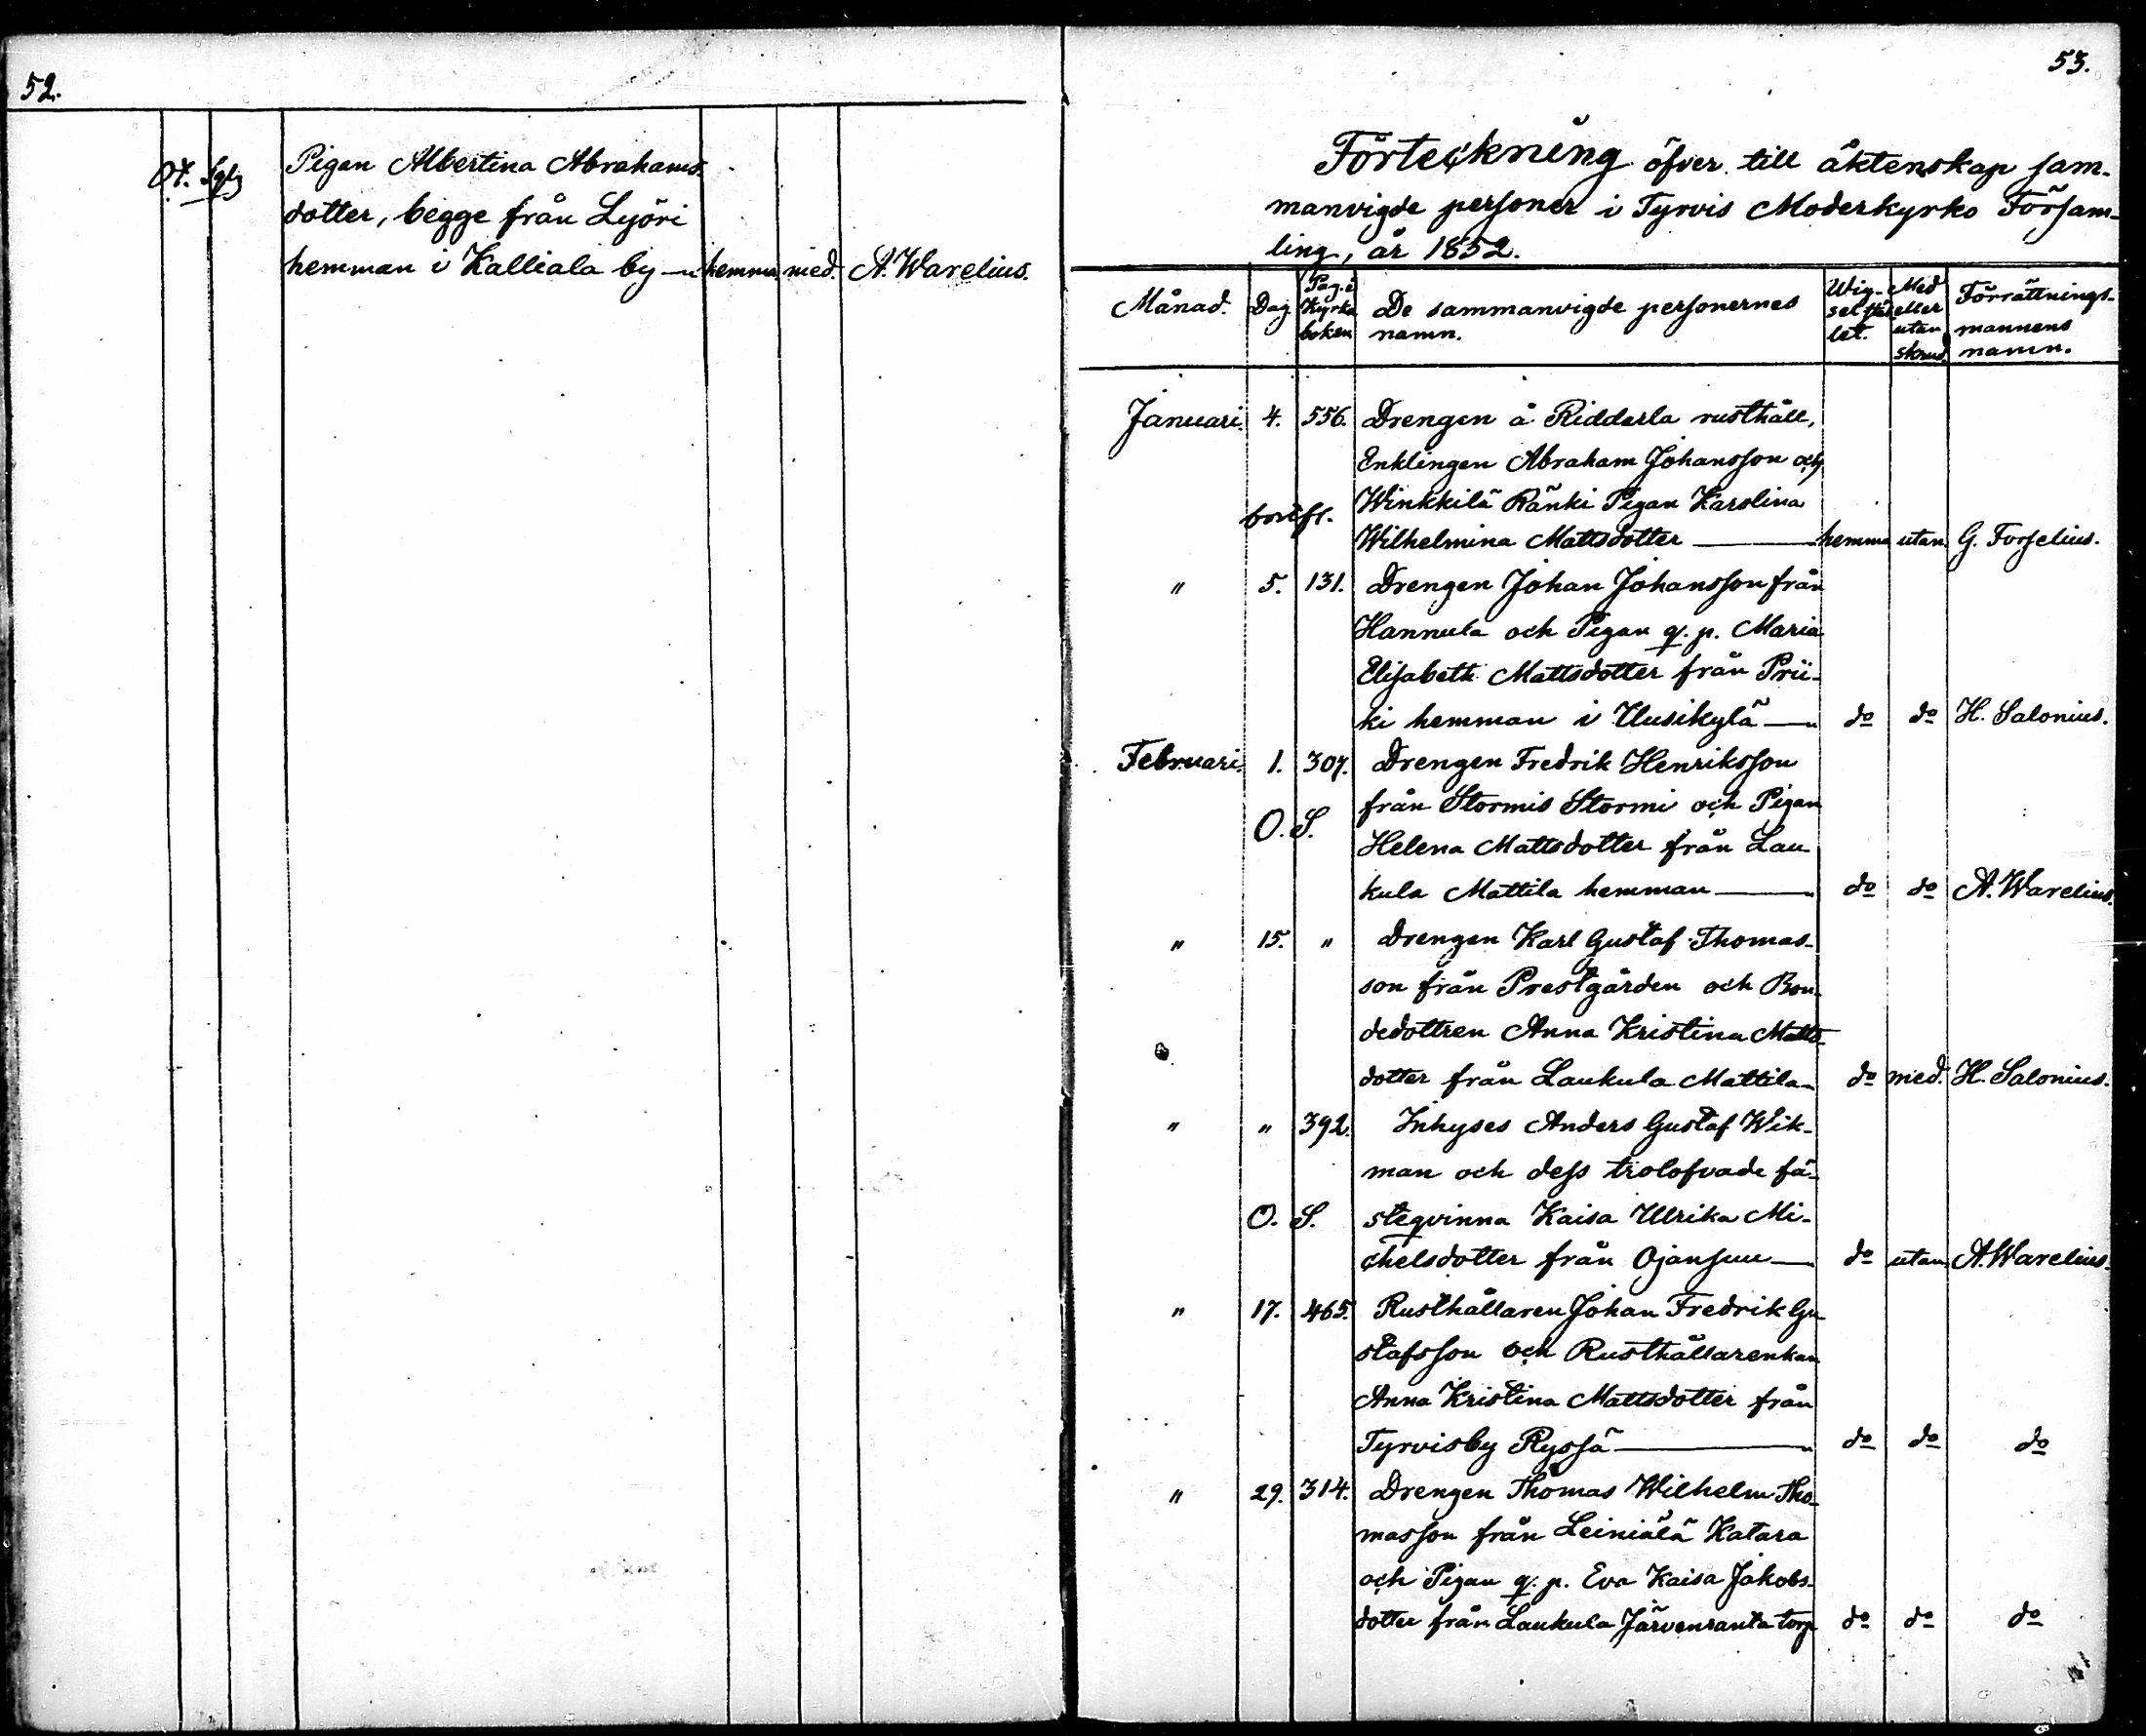 52.
Pigan Albertina Abrahams-
dotter, begge från Lyöri
hemman i Kalliala by — hemma med. A. Warelius.
53.
Förteckning öfver till äktenskap sam-
manvigde personer i Tyrvis Moderkyrko Försam-
ling, år 1852.
Månad. Dag Pag. i Kyrko boken De sammanvigde personernes namn. Wig-selstäl let. Med eller utan skrud. Förrättnings-mannens namn.
Januari. 4. 556. Drengen å Ridderla rusthåll,
Enklingen Abraham Johansson och
Winkkilä Ränki Pigan Karolina
Wilhelmina Mattsdotter — hemma utan. G. Forselius.
" 5. 131. Drengen Johan Johansson från
Hannula och Pigan q. p. Maria
Elisabeth Mattsdotter från Prii-
ki hemman i Uusikylä — do do H. Salonius.
Februari. 1. 307. Drengen Fredrik Henriksson
från Stormis Stormi och Pigan
O. S.
Helena Mattsdotter från Lau
kula Mattila hemman — do do A. Warelius.
" 15. " Drengen Karl Gustaf Thomas-
son från Prestgården och Bon-
dedottren Anna Kristina Matts-
dotter från Laukula Mattila do med. H. Salonius.
" " 392. Inhyses Anders Gustaf Wik-
man och dess trolofvade fä-
O. S. steqvinna Kaisa Ulrika Mi-
chelsdotter från Ojansuu — do utan A. Warelius.
" 17. 465. Rusthållaren Johan Fredrik Gu
stafsson och Rusthållarenkan
Anna Kristina Mattsdotter från
Tyrvisby Ryssä — do do do
" 29. 314. Drengen Thomas Wilhelm Tho-
masson från Leiniälä Katara
och Pigan q. p. Eva Kaisa Jakobs-
dotter från Laukula Järvenranta torp do do do